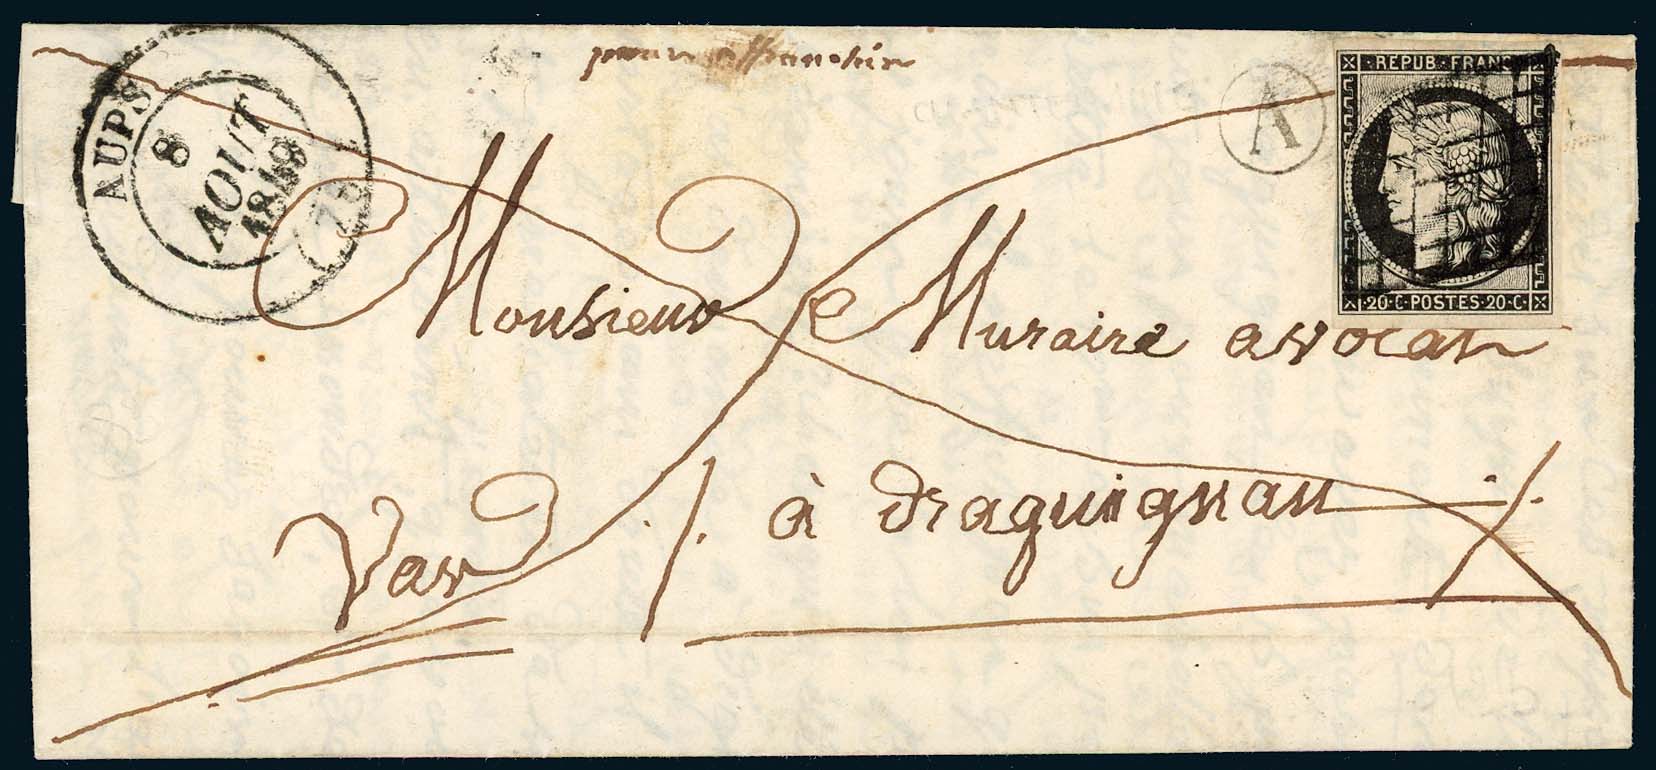 pour affranchir
AUPS
8
AOUT
1849
(78)
A
REPUB FRANC
20·C·POSTES·20·C·
Monsieur Muraire avocat
à Draguignan
Var